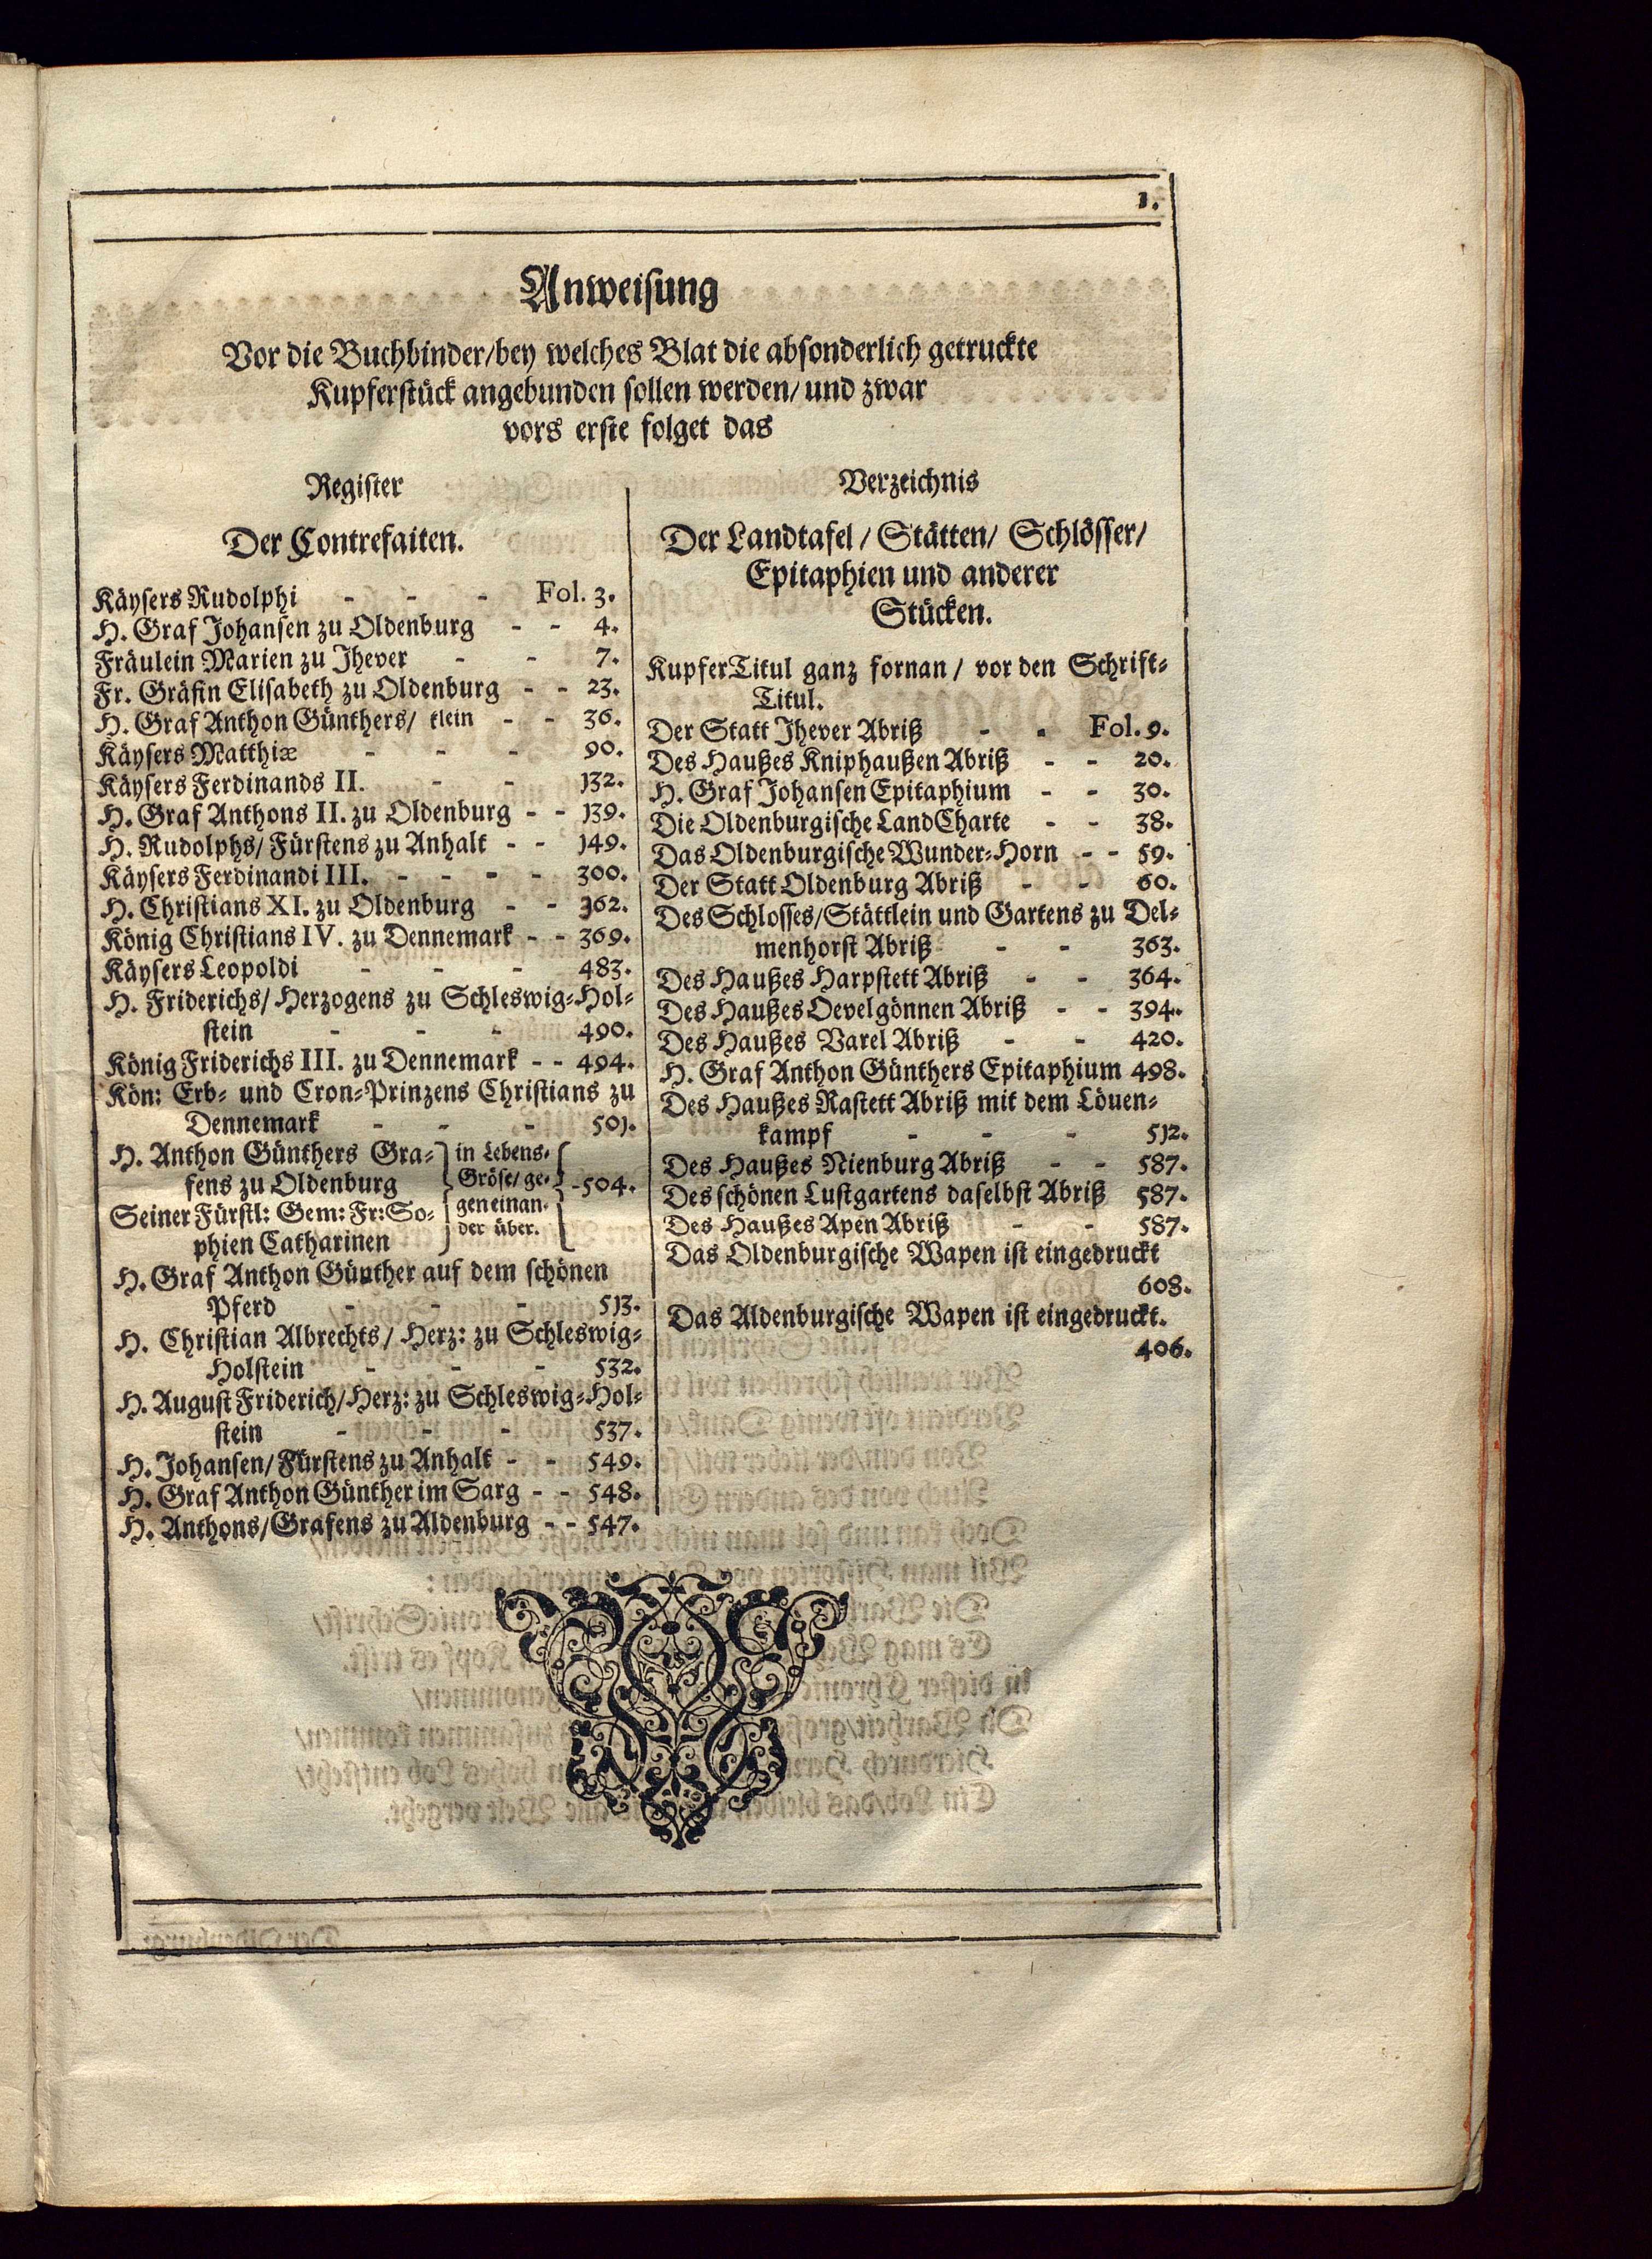 1.
Anweisung
Vor die Buchbinder/bey welches Blat die absonderlich getruckte
Kupferstück angebunden sollen werden/ und zwar
vors erste folget das
Register
Der Contrefaiten.
Käysers Rudolphi - - - Fol. 3.
H. Graf Johansen zu Oldenburg - - 4.
Fräulein Marien zu Jhever - - 7.
Fr. Gräfin Elisabeth zu Oldenburg - - 23.
H. Graf Anthon Günthers/ klein - - 36.
Käysers Matthiæ - - - 90.
Käysers Ferdinands II. - - 132.
H. Graf Anthons II. zu Oldenburg - - 139.
H. Rudolphs/ Fürstens zu Anhalt - - 149.
Käysers Ferdinandi III. - - - - 300.
H. Christians XI. zu Oldenburg - - 362.
König Christians IV. zu Dennemark - - 369.
Käysers Leopoldi - - - 483.
H. Friderichs/ Herzogens zu Schleswig-Hol-
stein - - - 490.
König Friderichs III. zu Dennemark - - 494.
Kön: Erb- und Cron-Prinzens Christians zu
Dennemark - - - 501.
H. Anthon Günthers Gra-
fens zu Oldenburg
Seiner Fürstl: Gem: Fr: So-
phien Catharinen
in Lebens-
Gröse/ ge-
gen einan-
der über.
-504.
H. Graf Anthon Günther auf dem schönen
Pferd - - - 513.
H. Christian Albrechts/ Herz: zu Schleswig-
Holstein - - - 532.
H. August Friderich/Herz: zu Schleswig-Hol-
stein - - - 537.
H. Johansen/ Fürstens zu Anhalt - - 549.
H. Graf Anthon Günther im Sarg - - 548.
H. Anthons/Grafens zu Aldenburg - - 547.
Verzeichnis
Der Landtafel / Stätten/ Schlösser/
Epitaphien und anderer
Stücken.
KupferTitul ganz fornan / vor den Schrift-
Titul.
Der Statt Jhever Abriß - - Fol. 9.
Des Haußes Kniphaußen Abriß - - 20.
H. Graf Johansen Epitaphium - - 30.
Die Oldenburgische LandCharte - - 38.
Das Oldenburgische Wunder-Horn - - 59.
Der Statt Oldenburg Abriß - - 60.
Des Schlosses/Stättlein und Gartens zu Del-
menhorst Abriß - - 363.
Des Haußes Harpstett Abriß - - 364.
Des Haußes Oevelgönnen Abriß - - 394.
Des Haußes Varel Abriß - - 420.
H. Graf Anthon Günthers Epitaphium 498.
Des Haußes Rastett Abriß mit dem Löuen-
kampf - - - 512.
Des Haußes Nienburg Abriß - - 587.
Des schönen Lustgartens daselbst Abriß 587.
Des Haußes Apen Abriß - - 587.
Das Oldenburgische Wapen ist eingedruckt
608.
Das Aldenburgische Wapen ist eingedruckt.
406.